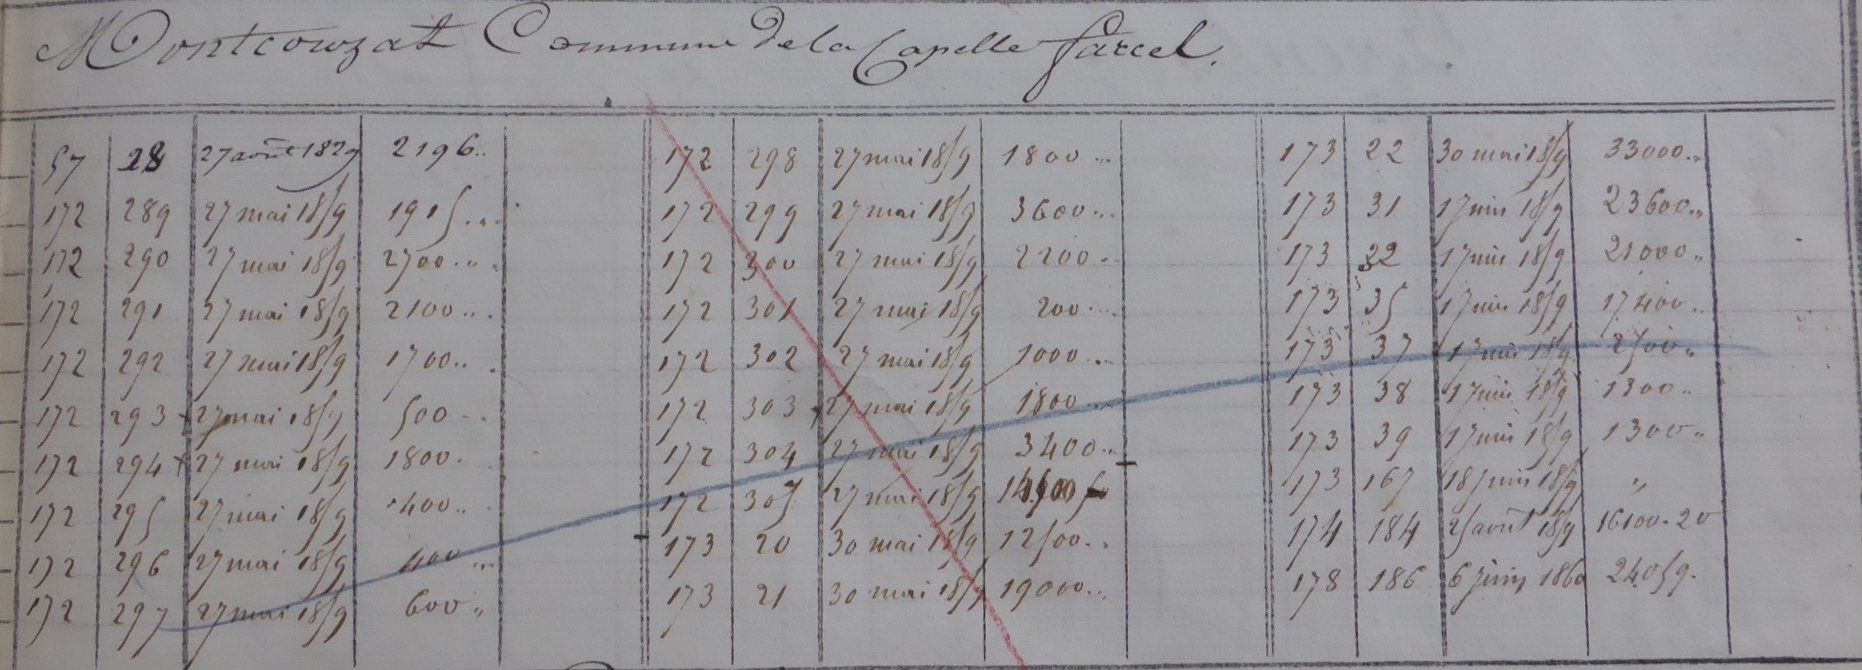 Montcouzat Commune de la Capelle farcel.
57 28 27 août 1829 2196..
172 289 27 mai 1859 1915..
172 290 27 mai 1859 2700..
172 291 27 mai 1859 2100..
172 292 27 mai 1859 1700..
172 293 27 mai 1859 500..
172 294 27 mai 1859 1800..
172 295 27 mai 1859 400..
172 296 27 mai 1859 400..
172 297 27 mai 1859 600..
172 298 27 mai 1859 1800..
172 299 27 mai 1859 3600..
172 300 27 mai 1859 2200..
172 301 27 mai 1859 200..
172 302 27 mai 1859 1000..
172 303 27 mai 1859 1800..
172 304 27 mai 1859 3400..
172 305 27 mai 1859
173 20 30 mai 1859 12500..
173 21 30 mai 1859 19000..
173 22 30 mai 1859 33000..
173 31 1 juin 1859 23600..
173 32 1 juin 1859 21000..
173 35 1 juin 1859 17400..
173 37 1 juin 1859 2500..
173 38 1 juin 1859 1300..
173 39 1 juin 1859 1300..
173 167 18 juin 1859 "
174 184 25 août 1859 16100.20
178 186 6 juin 1860 24059.